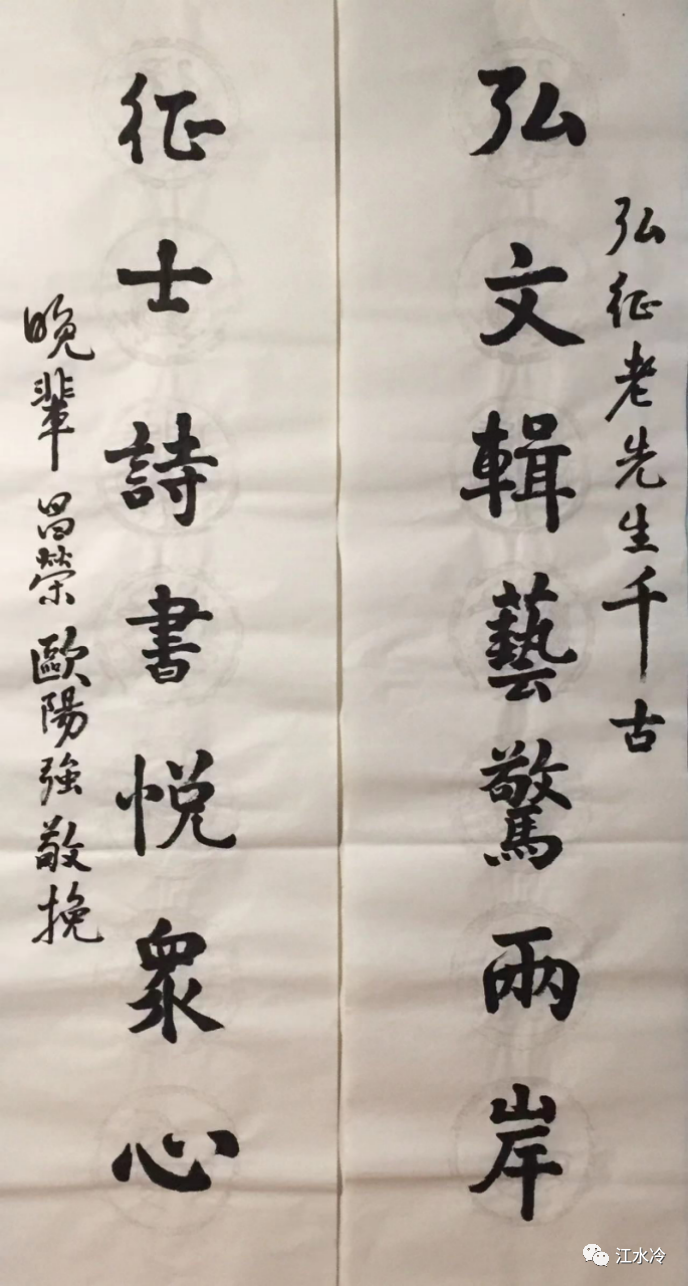 弘征老先生千古
弘文輯藝驚兩岸
征士詩書悦衆心
晚輩昌榮歐陽強敬挽
江水冷